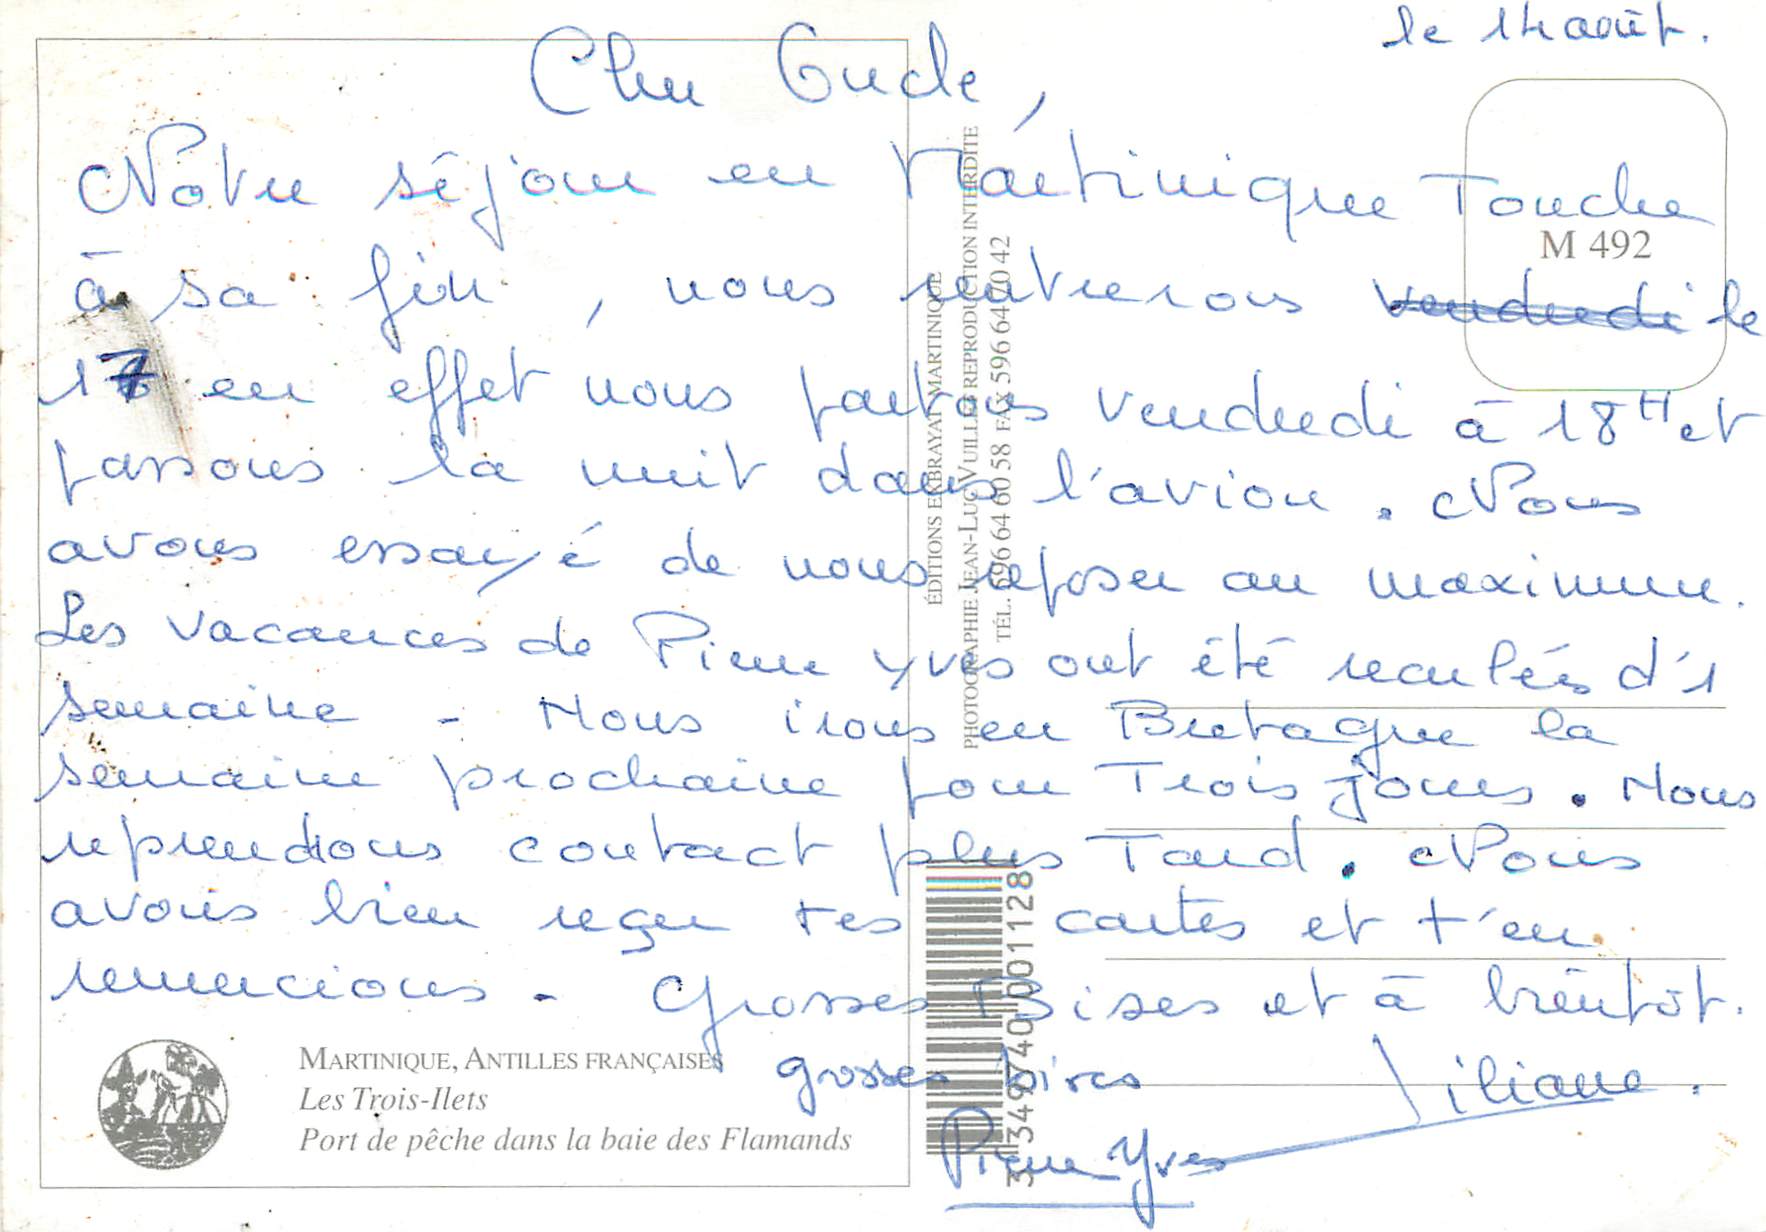 le 14 août.
Cher Oncle,
Notre séjour en Martinique Touche
M 492
à sa fin, nous rentrerons vendredi le
17 en effet nous partons vendredi à 18H et
passons la nuit dans l'avion. Nous
avons essayé de nous reposer au maximum.
Les vacances de Pierre Yves ont été reculées d'1
semaine - Nous irons en Bretagne la
semaine prochaine pour Trois jours. Nous
reprendrons contact plus Tard. Nous
avons bien reçu tes cartes et t'en
remercions - Grosses Bises et à bientôt.
grosses bises Liliane.
Pierre Yves
MARTINIQUE, ANTILLES FRANÇAISES
Les Trois-Ilets
Port de pêche dans la baie des Flamands
ÉDITIONS EXBRAYAT MARTINIQUE
PHOTOGRAPHIE JEAN-LUC VUILLET REPRODUCTION INTERDITE
TÉL. 596 64 60 58 FAX 596 64 70 42
3 349740 001128